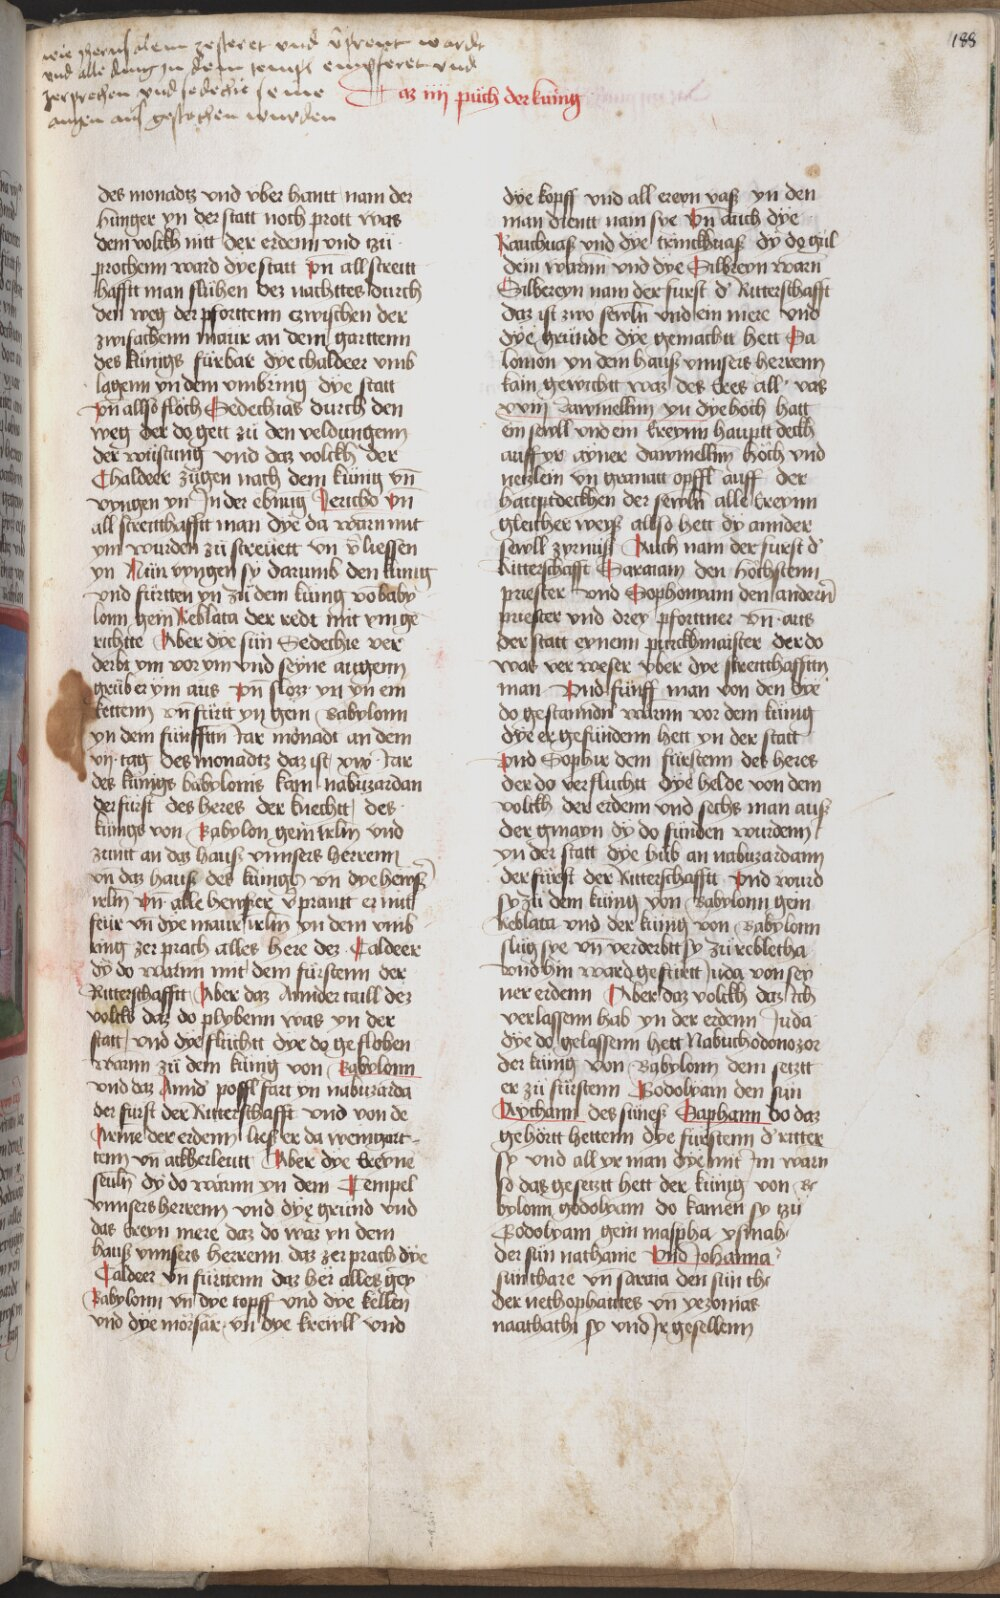 wie Jherusalem zesteret und v̈sprent wardt
und alle ding in dem templ empfferet und
zerprochen und sedechie seine
augen aus gestochen wurden
Daz iiij püch der küng
188
des monadtz vnd vber hantt nam der
hunger yn der statt noch prott was
dem volckh nitt der erdenn vnd tzü
prochenn ward dye statt Vn̄ all streitt
hafftt man fluhen dez nachttes durch
den weg der pforttenn czwischen der
zwifachenn maur an dem garttenn
des künigs fürbar dye chaldeer vmb
lagenn yn dem vmbring dye statt
Vn̄ allso flöch Sedechias durch den
weg der do gett zü den veldungenn
der wüstung vnd daz volckh der
Chaldeer zugen nach dem künig vn̄
vyngen yn In der ebnüg Jericho Vn̄
all streitthafftt man dye da warn mit
ym wurden zü streüett vn̄ v̈liessen
yn Nün vyngen sy darumb den künig
vnd fürtten yn zü dem küng vo baby
lonn gein Reblata der redt mit ym ge
richtte Aber dye sün Sedechie ver
derbt ym vor ym vnd seyne augenn
grüb er ym aus Vn̄ slozz yn yn ein
kettenn vn̄ fürtt yn gein Babylonn
yn dem fünfften Jar monadt an dem
vij tag des monadtz daz ist xix Jar
des künigs babylonis kam nabuzardan
der fürst des heres der knechtt des
künigs von Babylon gein irlm̄ vnd
zuntt an daz hauß vnnsers herrenn
vn̄ daz hauß des künigs vn̄ dye hewsz̄
irlm̄ Vn̄ alle hewser v̈prantt er mit
feür vn̄ dye maur irlm̄ yn dem vmb
ring zerprach alles here dez Caldeer
dy do warnn mit dem fürstenn der
Ritterschafftt Aber daz annder taill dez
volcks daz do plybenn was yn der
statt vnd dye flüchtt dye do geflohen
warnn zü dem künig von Babylonn
vnd daz Annd' poffl fürt yn nabuzarda
der fürst der Ritterschafft vnd von de
Arme der erdenn ließ er da weingart
tenn vn̄ ackherleutt Aber dye Ereyne
seuln dy do warnn yn dem Tempel
vnnsers herrenn vnd dye grund vnd
das Ereyn mere daz do waz yn dem
hauß vnnsers herrenn daz zerprach dye
Caldeer vn̄ fürttenn daz her alles gey
Babylonn vn̄ dye topff vnd dye kellen
vnd dye mörsär vn̄ dye kreiwll vnd
dye kopff vnd all ereyn vaß yn den
man dientt nam sye Vn̄ auch dye
Rauchuaß vnd dye trinckhuaß dy do gül
dein warnn vnd dye Silbreyn warn
Silbereyn nam der furst d' Ritterschafft
daz ist zwo sewln vnd ein mere vnd
dye gründe dye gemachtt hett Sa
lomon yn dem hauß vnnsers herrenn
kain gewichtt waz des Eres all vas
xviij dawmellnn yn dye höch hatt
ein sewll vnd ein Ereynn hauptt deckh
auff yr ayner dawmellnn hoch vnd
netzlein vn̄ granatt öpffl auff der
hauptdeckhen der sewln alle Ereynn
gleicher weiß allso hett dy annder
sewll zyrnuß Auch nam der furst d'
Ritterschafft Saraiam den höchstenn
priester vnd Sophonyam den andern̄
priester vnd drey pforttner vn̄ aus
der statt eynenn purckhmaister der do
was ver weser vber dye streitthafftin
man Vnd fünff man von den dye
do gestannden warnn vor dem künig
dye er gefündenn hett yn der statt
Vnd Sophir dem fürstenn des heres
der do versuchtt dye helde von dem
volckh der erdenn vnd sechs man auß
der gmayn dy do funden wurdenn
yn der statt dye hüb an nabuzardann
der fürst der Ritterschafftt Vnd wurd
sy zü dem künig von Babylonn gein
Reblata vnd der künig von Babylonn
slüg sye vn̄ verderbtt sy zü rebletha
vnd hin ward gefürtt Juda von sey
ner erdenn Aber daz volckh daz Ich
verlassenn hab yn der erdenn Juda
dye do gelassenn hett Nabuchodonozor
der künig von Babylonn dem setztt
er zü fürstenn Godolyam den sün
Aychann des süness Saphann do daz
gehörtt hettenn dye fürstenn d' ritter
sy vnd all yr man dye mit Im warn
so das gesetztt hett der künig von Ba
bylonn godolyam do kamen sy tzü
Godolyam gein maspha ysmah
der sün nathanie Vnd Johanna
sün thare vn̄ saraia den sün the
der nethophatites vn̄ yezonias
naathathi sy vnd Ir gesellenn